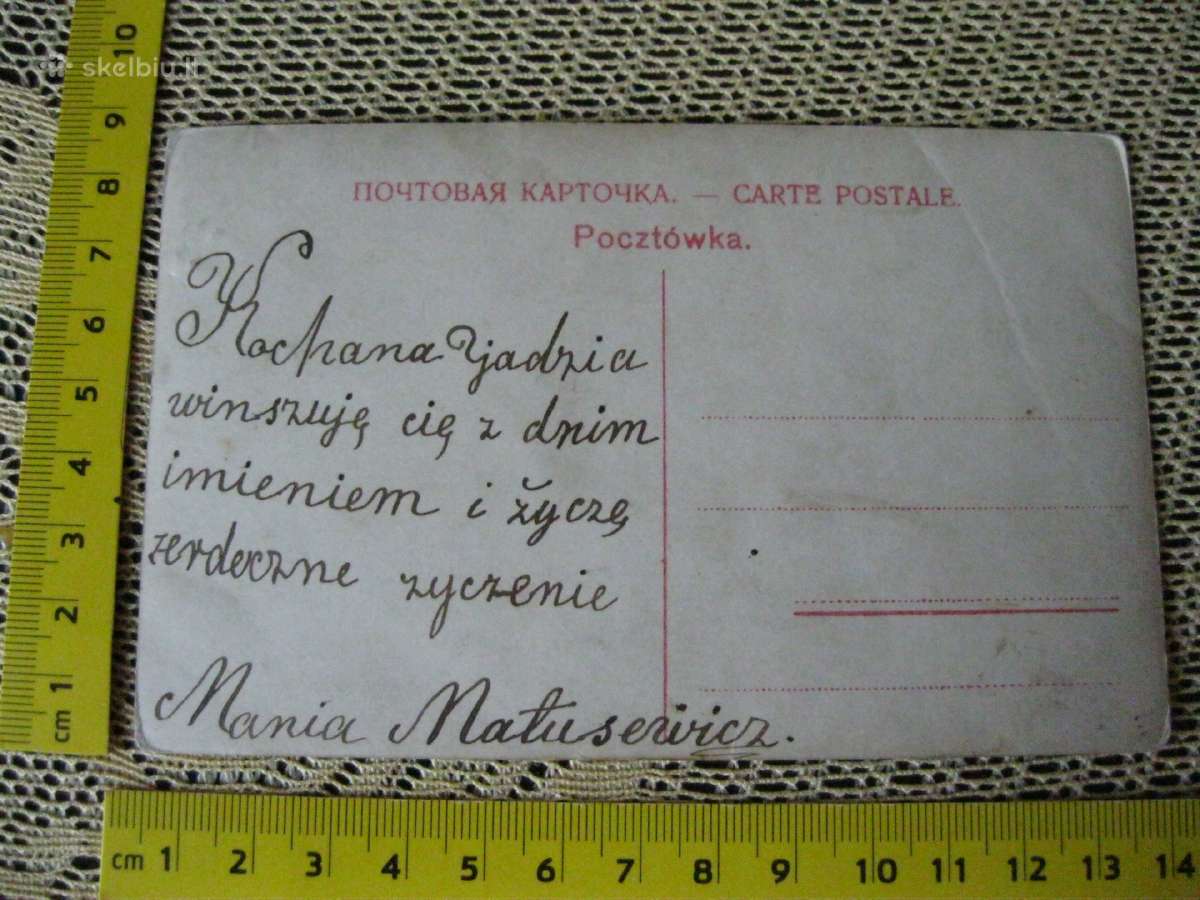 skelbiu.lt
ПОЧТОВАЯ КАРТОЧКА. — CARTE POSTALE.
Pocztówka.
Kochana Jjadzia
winszuję cię z dnim
imieniem i życzę
zerdeczne zyczenie
Mania Matusewicz.
cm 1 2 3 4 5 6 7 8 9 10
cm 1 2 3 4 5 6 7 8 9 10 11 12 13 14